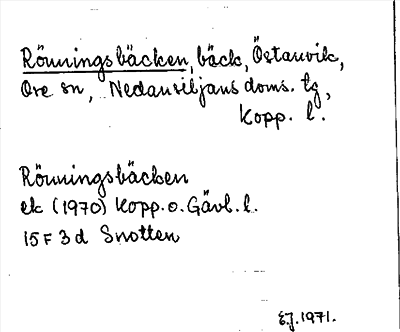 Rönningsbäcken, bäck, Östanvik,
Ore sn, Nedansiljans doms. tg,
Kopp. l.
Rönningsbäcken
ek (1970) Kopp. o. Gävl. l.
15F 3d Snotten
E.J. 1971.